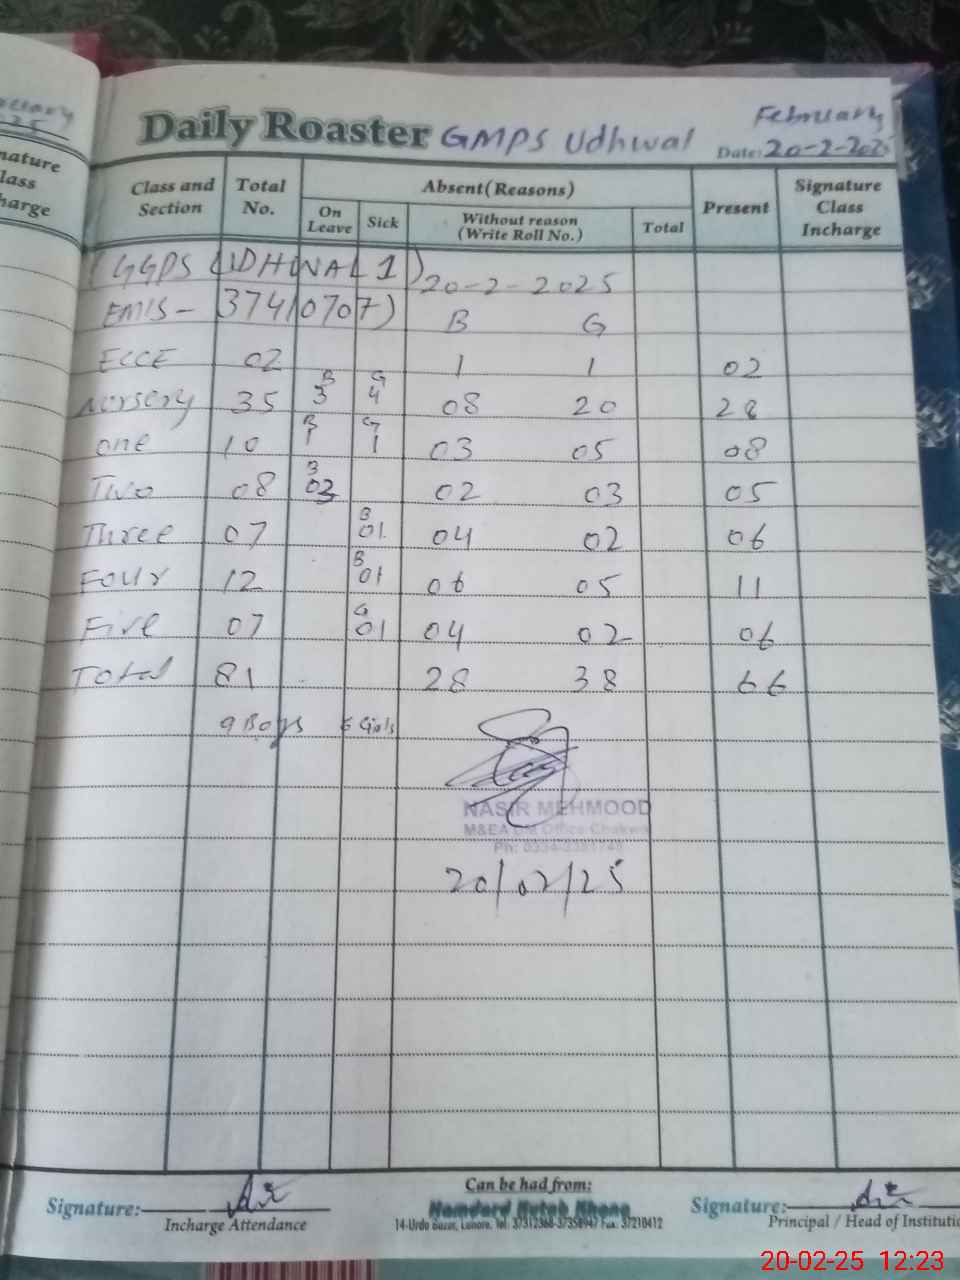 ature
lass
harge
Daily Roaster GMPS Udhwal
February
Date: 20-2-2025
Class and Section Total No. Absent(Reasons) Present Signature Class Incharge
On Leave Sick Without reason (Write Roll No.) Total
(GGPS UDHWAL 1) 20-2-2025
EMIS - 37410707) B G
ECCE 02 1 1 02
Nursery 35 B 3 G 4 08 20 28
one 10 B 1 G 1 03 05 08
Two 08 B 03 02 03 05
Three 07 B 01 04 02 06
Four 12 B 01 06 05 11
Five 07 G 01 04 02 06
Total 81 28 38 66
9 Boys 6 Girls
NASIR MEHMOOD
M&EA Office Chakwal
Ph:
20/02/25
Signature: Can be had from: Signature:
Incharge Attendance Hamdard Kutab Khana Principal / Head of Instituti
14-Urdu Bazar, Lahore. Tel: 37312368-37358947 Fax: 37210412
20-02-25 12:23